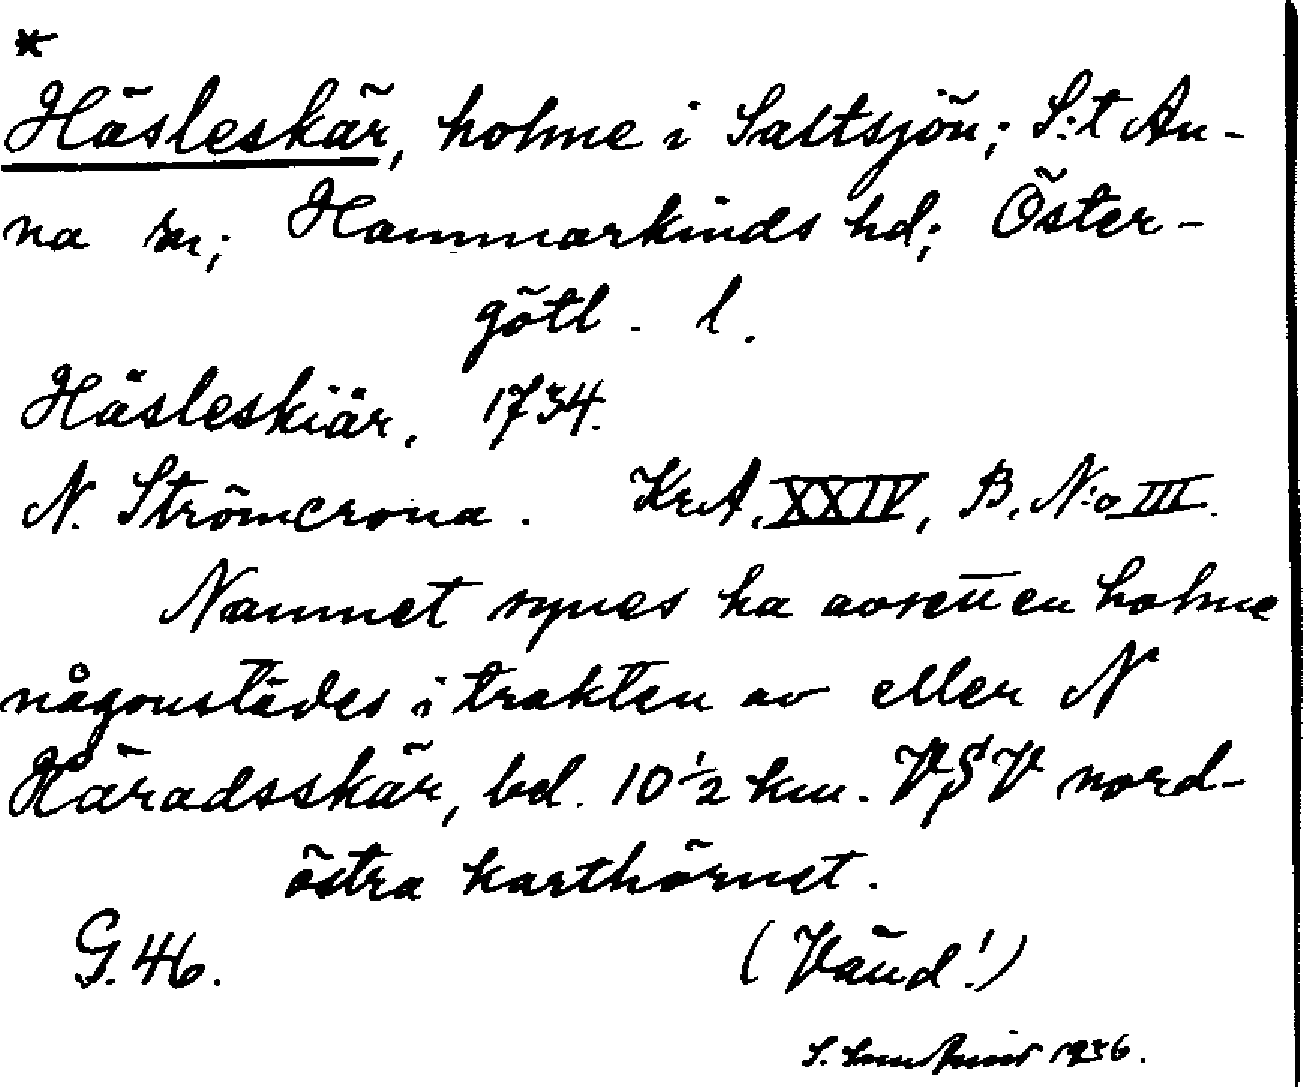 *
Häsleskär, holme i Saltsjön; S:t An-
na sn; Hammarkinds hd; Öster-
götl. l.
Häsleskiär. 1734.
N. Strömcrona. KrA, XXIV, B, N:o III.
Namnet synes ha avsett en holme
någonstädes i trakten av eller N
Häradsskär, bel. 10 1/2 km. VSV nord-
östra karthörnet.
G. 46. (Vänd!)
S. 1936.